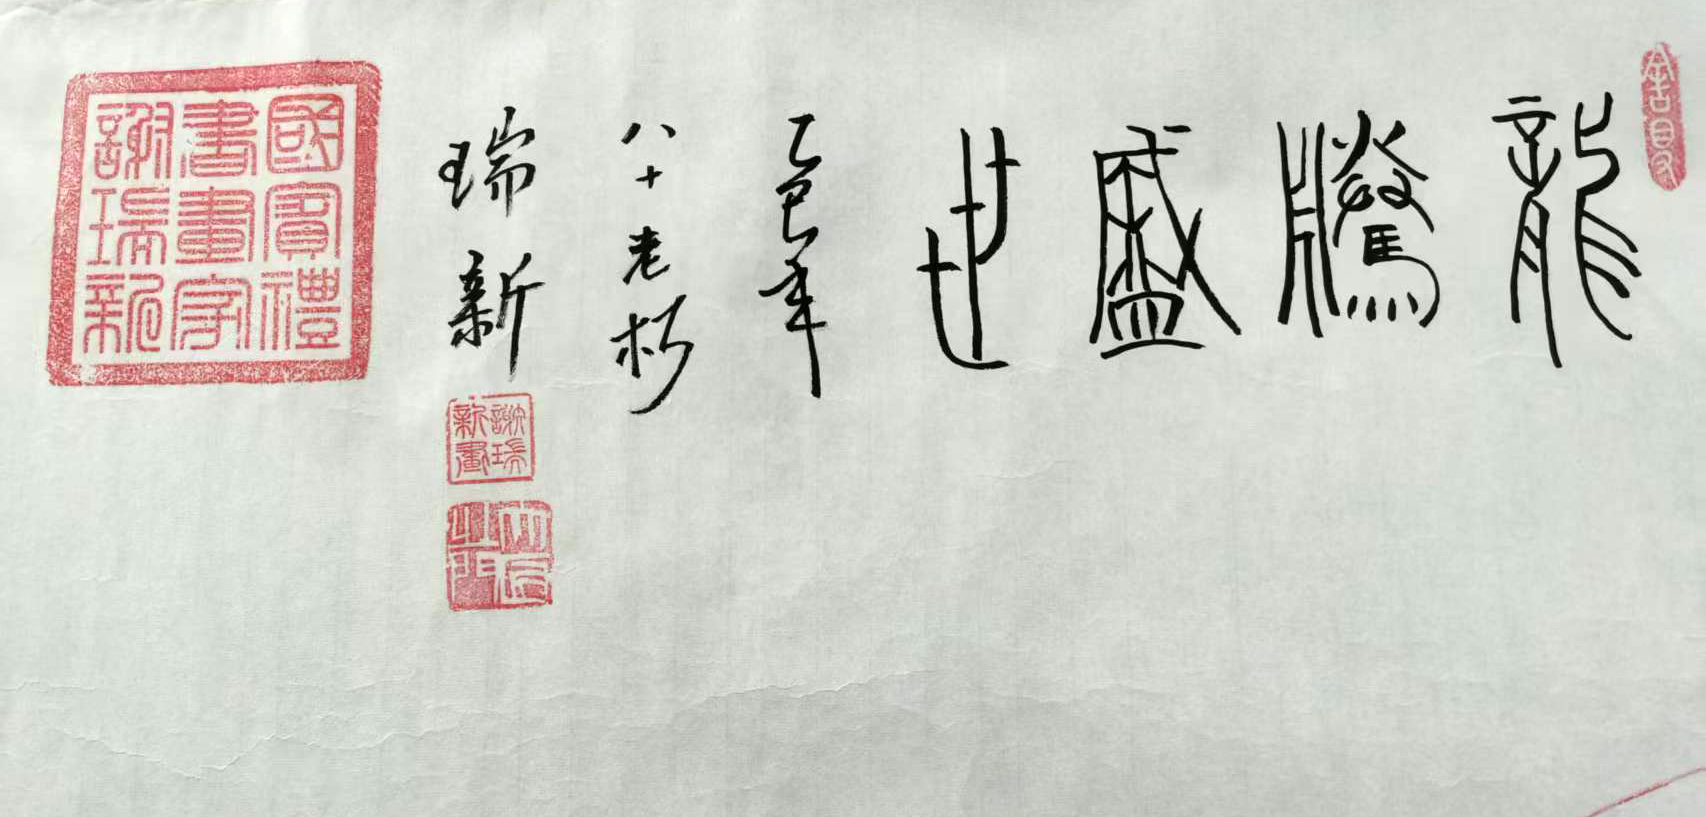 龍騰盛世
乙巳年
八十老朽
瑞新
謝瑞新畫
國賓禮
書畫家
謝瑞新